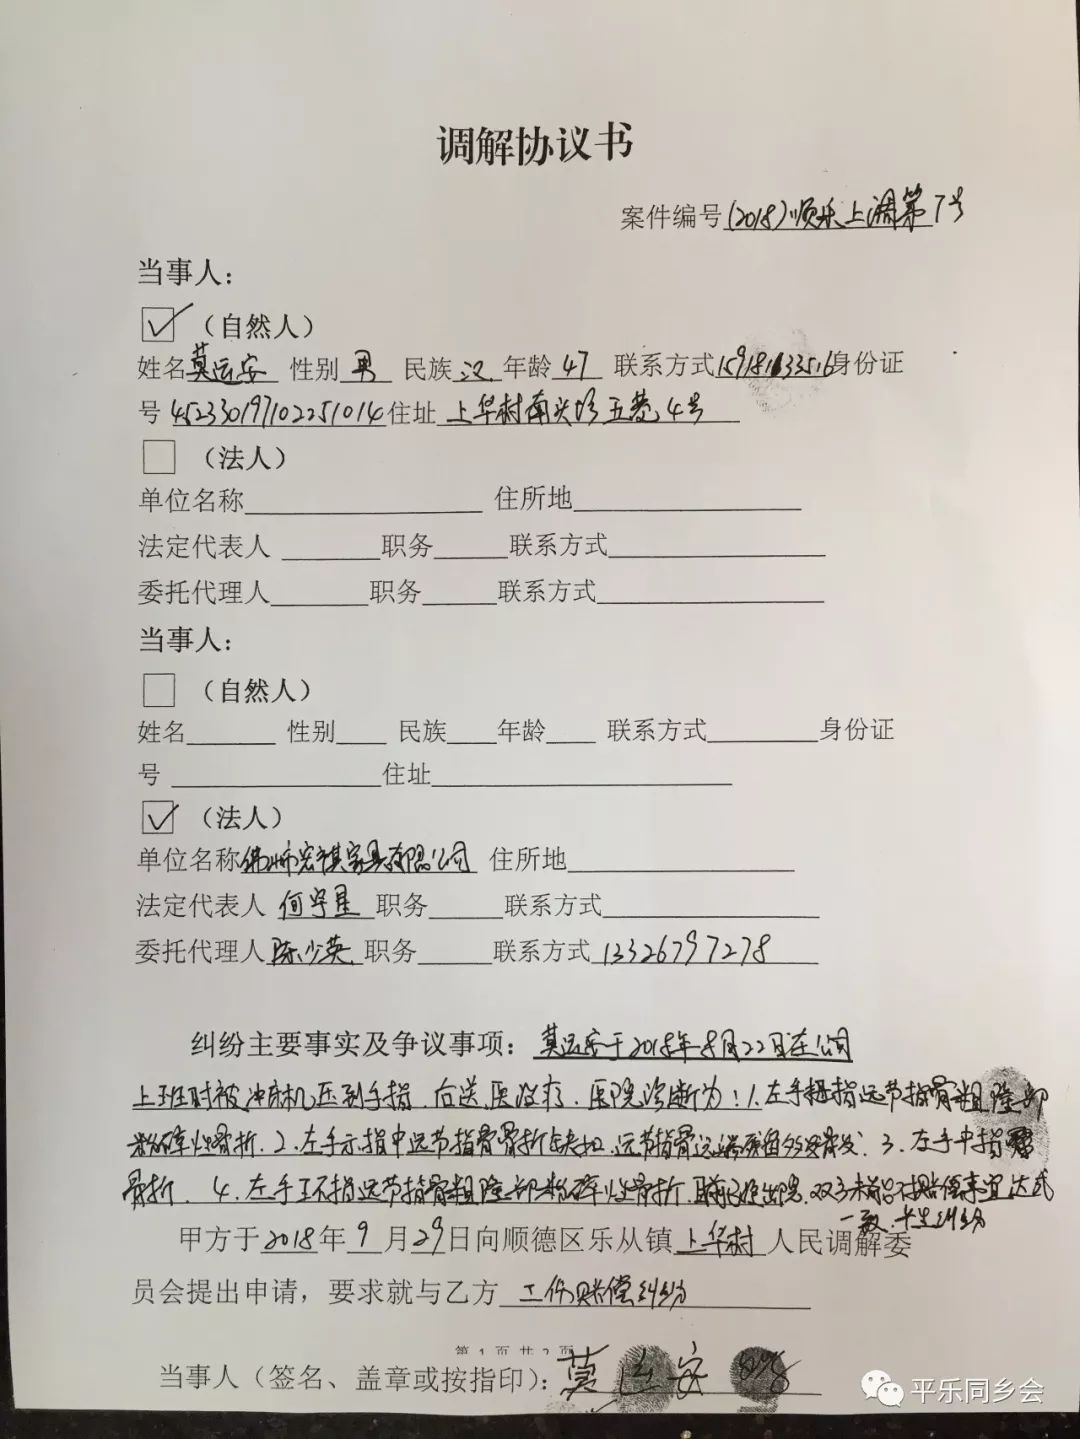 调解协议书
案件编号(2018)顺乐上调第7号
当事人：
（自然人）
姓名莫运安 性别男 民族汉 年龄47 联系方式15918133516身份证
号452330197102251014住址上华村南兴坊五巷4号
（法人）
单位名称 住所地
法定代表人 职务 联系方式
委托代理人 职务 联系方式
当事人：
（自然人）
姓名 性别 民族 年龄 联系方式 身份证
号 住址
（法人）
单位名称佛山市宏祺家具有限公司 住所地
法定代表人 何宇星 职务 联系方式
委托代理人陈少英 职务 联系方式13326797278
纠纷主要事实及争议事项：莫运安于2018年8月22日在公司
上班时被冲床机压到手指，后送医治疗，医院诊断为：1.左手拇指远节指骨粗隆部
粉碎性骨折．2．左手示指中远节指骨骨折缺损，远节指骨远端残留 3．左手中指
骨折．4．左手环指远节指骨粗隆部粉碎性骨折．目前已经出院，双方未能就赔偿事宜达成
一致，产生纠纷
甲方于2018年9月29日向顺德区乐从镇上华村人民调解委
员会提出申请，要求就与乙方 工伤赔偿纠纷
第 1 页 共 2 页
当事人（签名、盖章或按指印）：莫运安
平乐同乡会